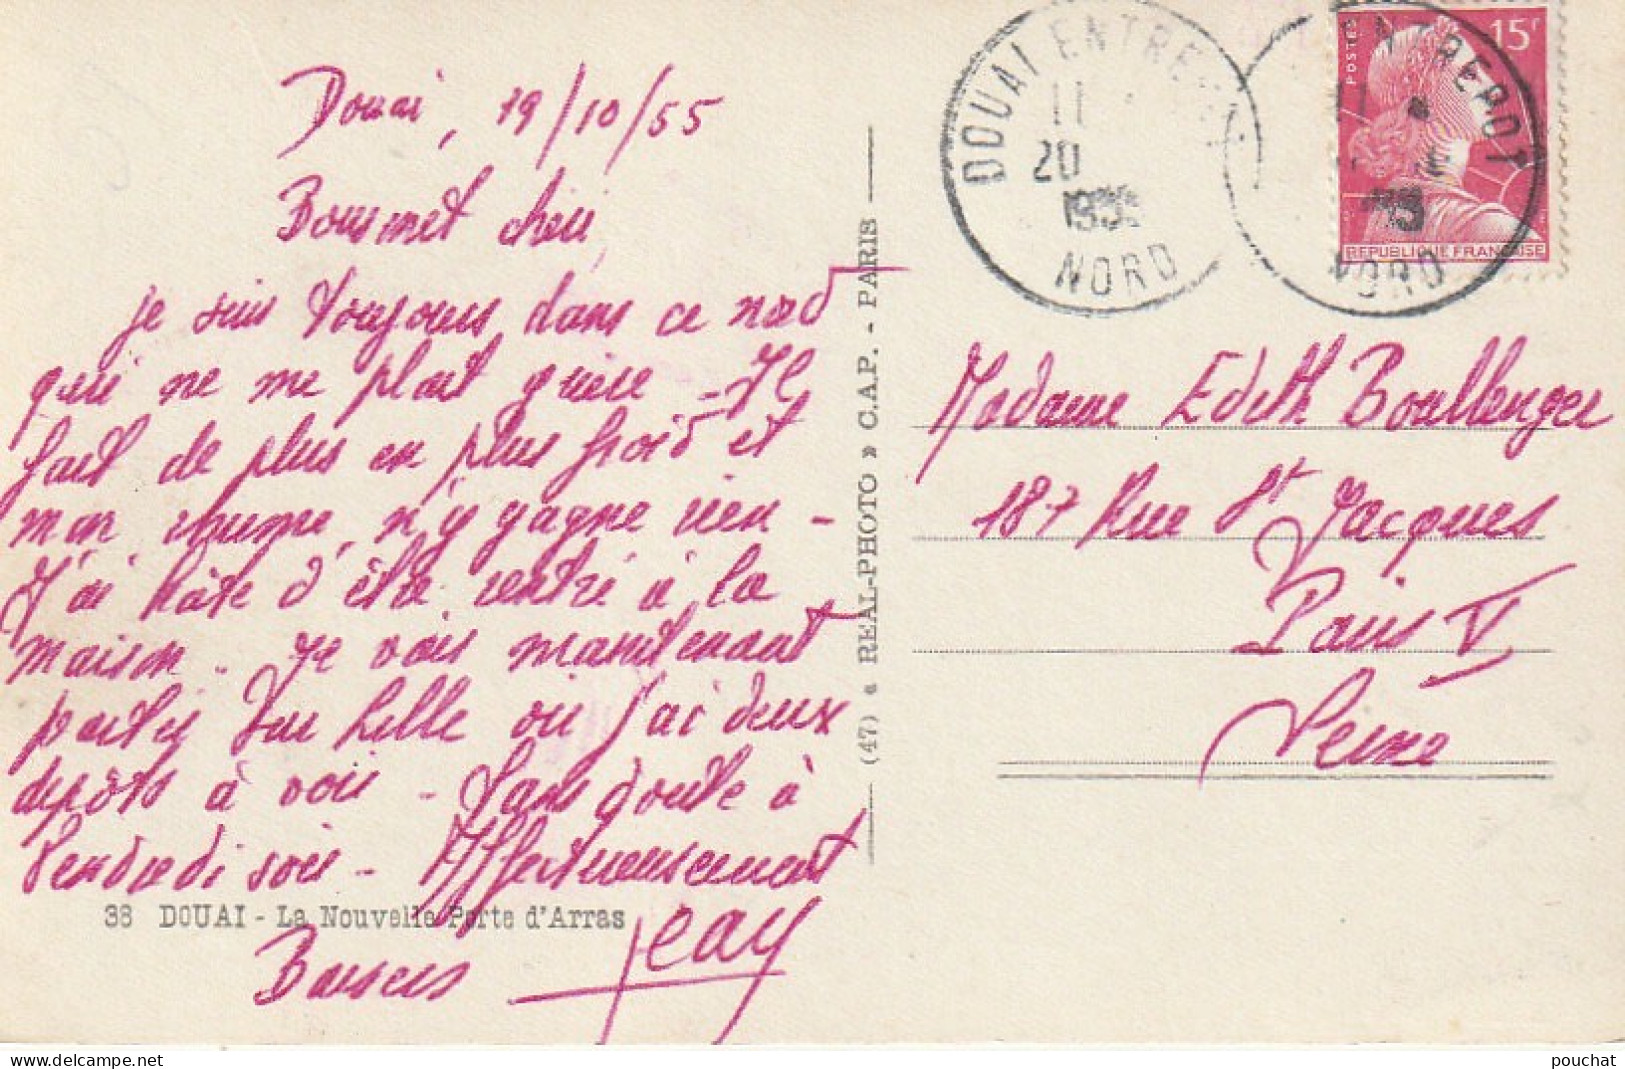 Douai, 19/10/55
cheri
je suis toujours dans ce nord
qui ne me plait guère - Il
fait de plus en plus froid et
mon rhume, n'y gagne rien -
J'ai hâte d'être rentré à la
maison - Je vais maintenant
partir sur Lille où j'ai deux
depôts à voir - Sans doute à
Vendredi soir - Affectueusement
38 DOUAI - La Nouvelle Porte d'Arras
Baisers Jean
(47) « REAL-PHOTO » C.A.P. - PARIS
DOUAI ENTREPOT
11
20
1955
NORD
ENTREPOT
NORD
POSTES
15F
REPUBLIQUE FRANCAISE
Madame Edith Boullenger
187 Rue St Jacques
Paris V
Seine
pouchat
www.delcampe.net